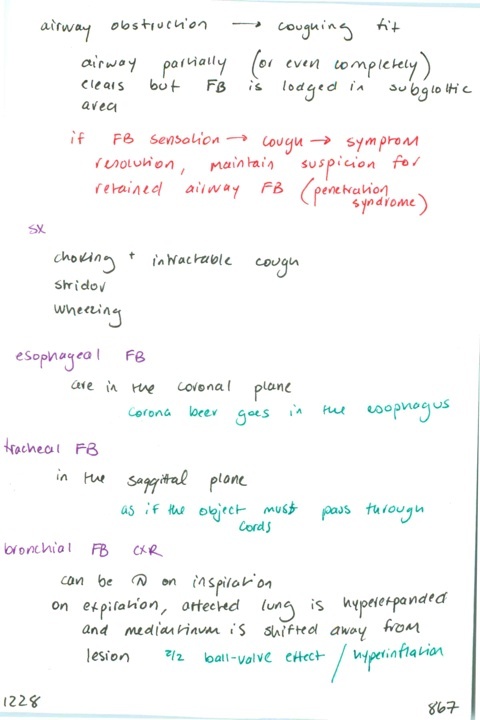 airway obstruction → coughing fit
airway partially (or even completely)
clears but FB is lodged in subglottic
area
if FB sensation → cough → symptom
resolution, maintain suspicion for
retained airway FB (penetration
syndrome)
sx
choking + intractable cough
stridor
wheezing
esophageal FB
are in the coronal plane
corona beer goes in the esophagus
tracheal FB
in the saggital plane
as if the object must pass through
cords
bronchial FB CXR
can be N on inspiration
on expiration, affected lung is hyperexpanded
and mediastinum is shifted away from
lesion 2/2 ball-valve effect / hyperinflation
1228
867